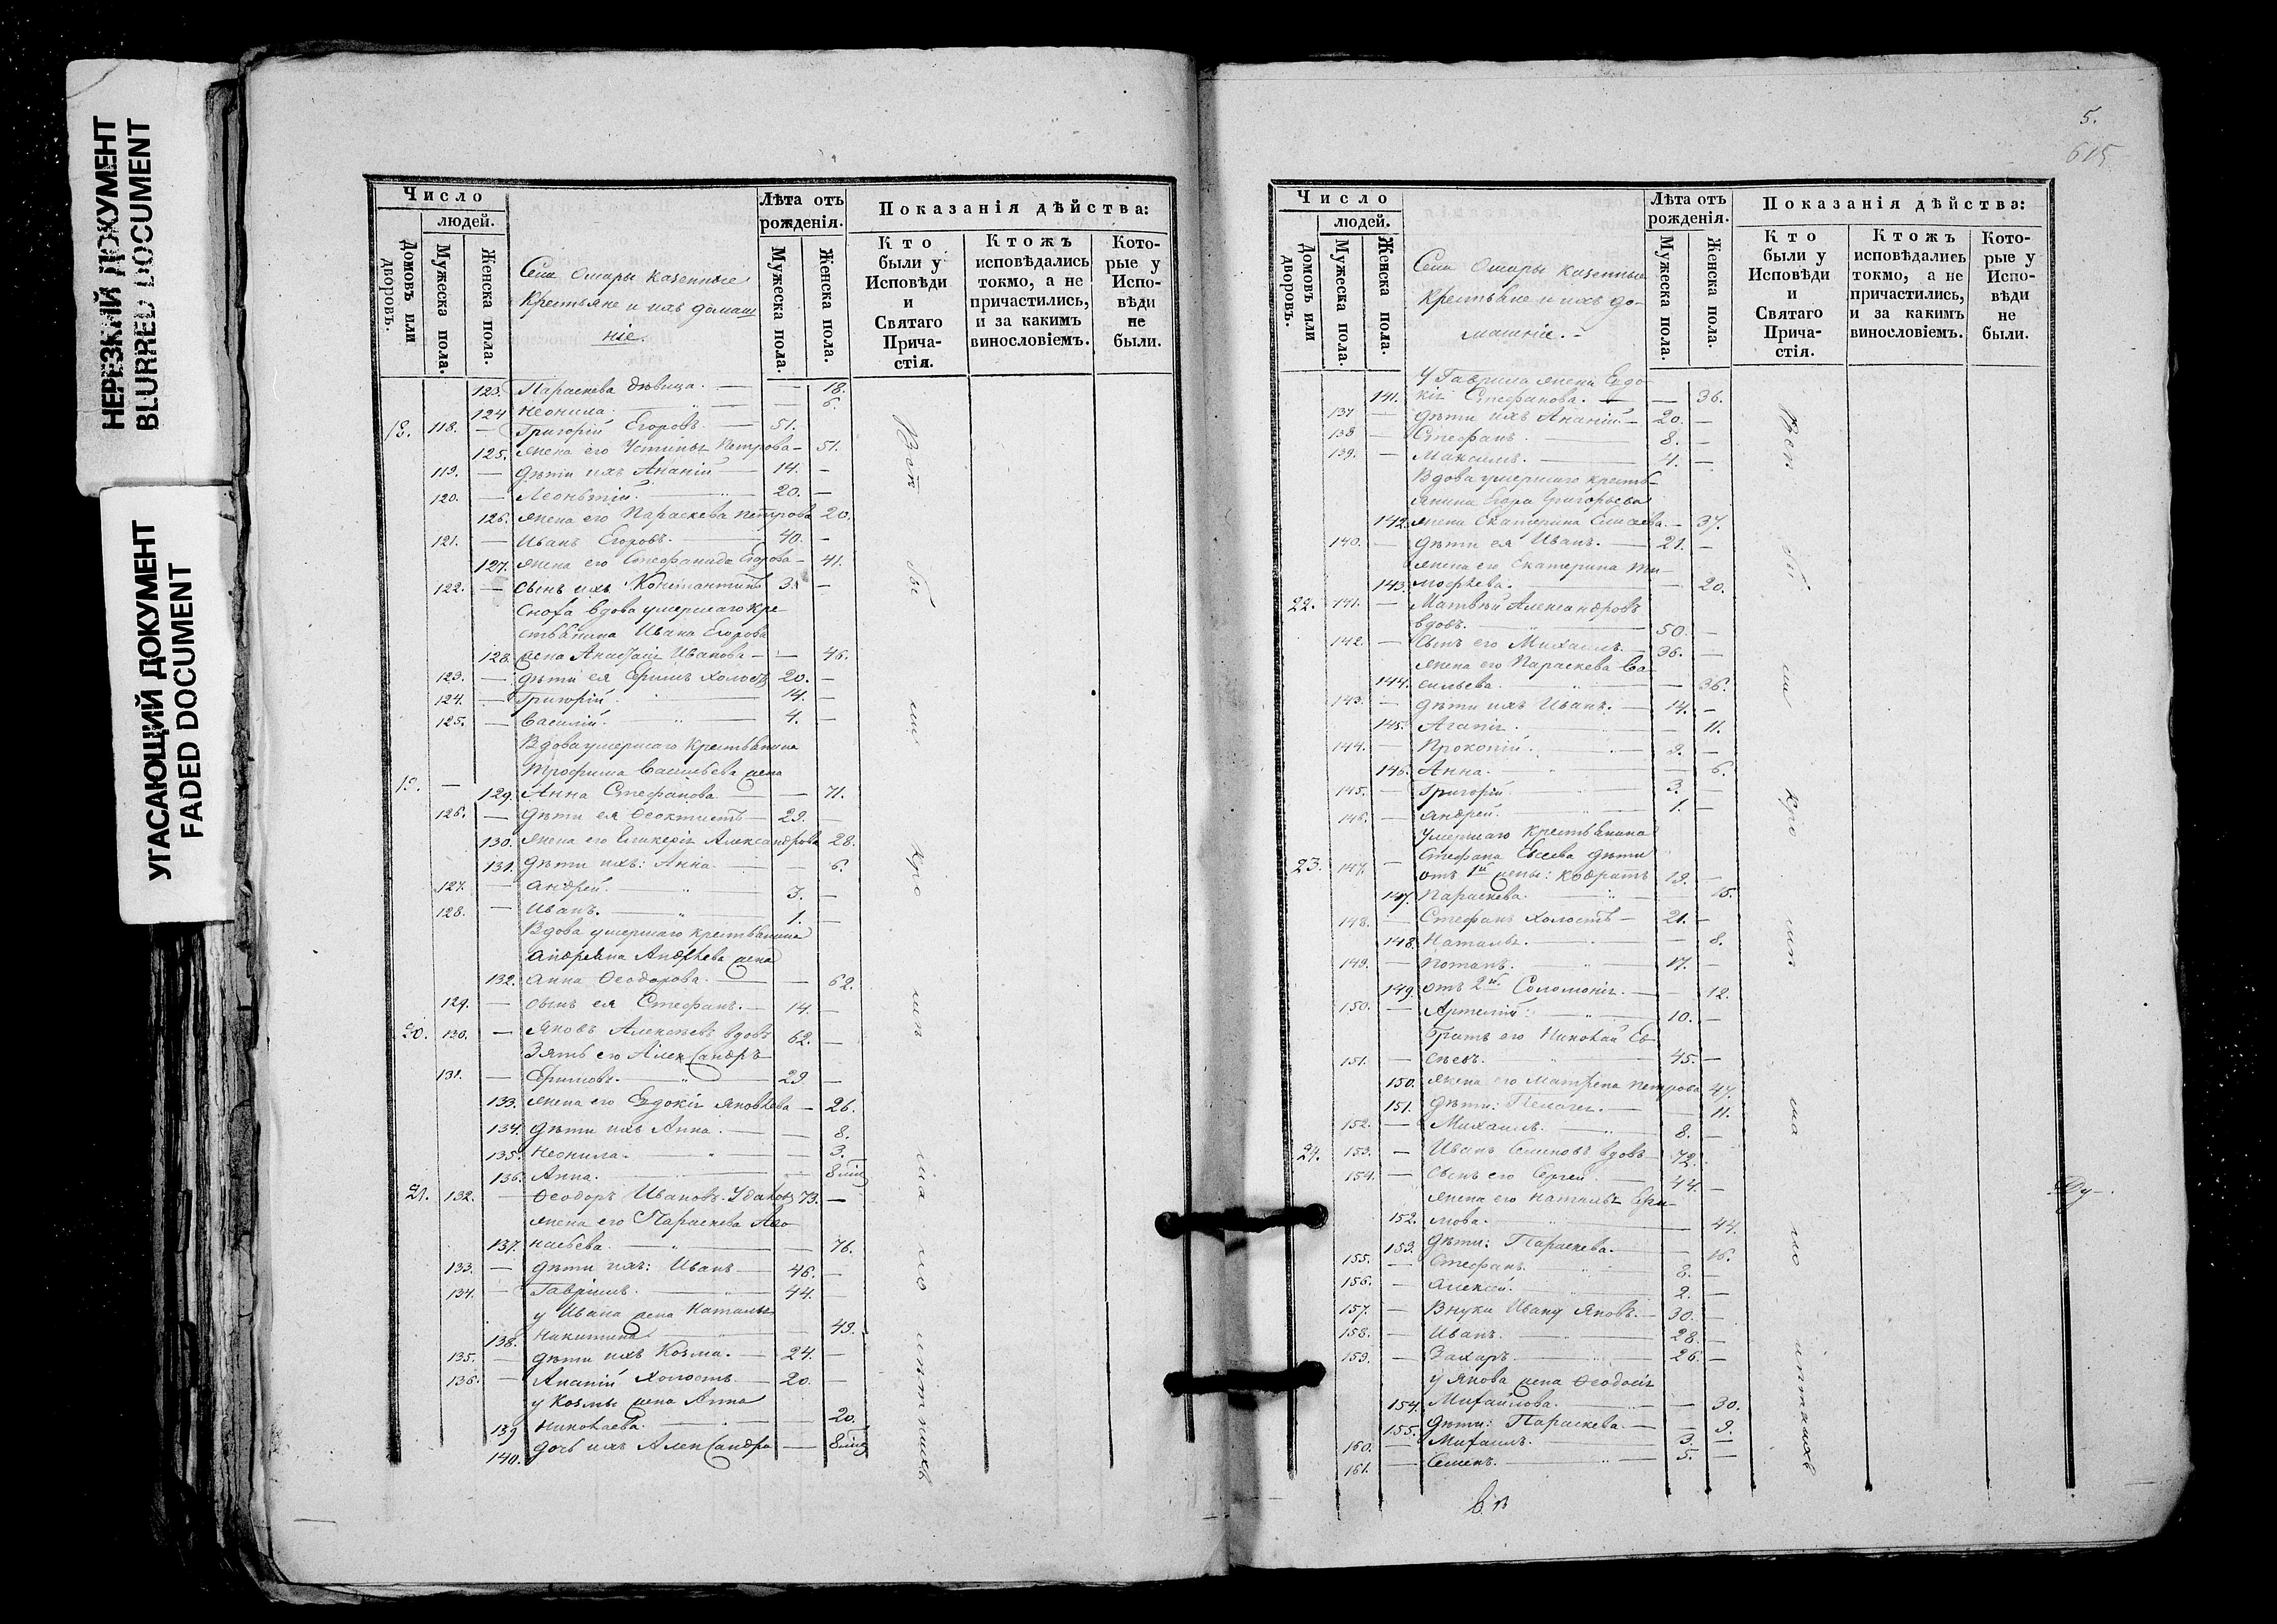 НЕРЕЗКИЙ ДОКУМЕНТ
BLURRED DOCUMENT
УГАСАЮЩИЙ ДОКУМЕНТ
FADED DOCUMENT
Число
людей.
Домовъ или дворовъ.
Мужеска пола.
Женска пола.
Села Отары казенные
крестьяне и ихъ домаш
ніе.
Лѣта отъ рожденія.
Мужеска пола.
Женска пола.
Показанія дѣйства:
Кто были у Исповѣди и Святаго Прича-стія.
Ктожъ исповѣдались токмо, а не причастились, и за какимъ винословіемъ.
Кото-рые у Испо-вѣди не были.
123. Параскева дѣвица. — — 18.
124 Неонила. — — 6.
18. 118. — Григорій Егоровъ. — 51.
125. жена его Устинья Петрова — 51.
119. — дѣти ихъ Ананій — 14. —
120. — Леонтій. — 20. —
126. жена его Параскева Петрова 20.
121. — Иванъ Егоровъ. — 40. —
127. жена его Стефанида Егорова — 41.
122. — сынъ ихъ Константинъ 3. —
Сноха вдова умершаго кре-
стьянина Ивана Егорова
128. жена Анастасія Иванова — — 46.
123. — дѣти ея Ефимъ холостъ 20. —
124. — Григорій. — 14. —
125. — Василій. — 4. —
Вдова умершаго крестьянина
Трофима Васильева жена
19. — 129. Анна Стефанова — — 71.
126. — дѣти ея Ѳеоктистъ — 29. —
130. жена его Гликерія Александрова 28.
131. дѣти ихъ: Анна. — — 6.
127. — Андрей. — 3. —
128. — Иванъ. — 1. —
Вдова умершаго крестьянина
Андреяна Андреева жена
132. Анна Ѳеодорова. — — 62.
129. — сынъ ея Стефанъ. — 14. —
20. 130. — Яковъ Алексѣевъ вдовъ 62. —
Зять его Александръ
131. — Ефимовъ. — 29. —
133. жена его Евдокія Яковлева — 26.
134. дѣти ихъ Анна. — — 8.
135. Неонила. — — 3.
136. Анна. — —
21. 132. — Ѳеодоръ Ивановъ 73. —
жена его Параскева Аѳо
137. насьева. — — 76.
133. — дѣти ихъ: Иванъ — 46. —
134. — Гавріилъ. — 44. —
у Ивана жена Наталья
138. Никитина — — 49.
135. — дѣти ихъ Козма. — 24. —
136. — Ананій холостъ — 20. —
у Козмы жена Анна
139 Николаева. — — 20.
140. дочь ихъ Александра —
5.
615
Число
людей.
Домовъ или дворовъ.
Мужеска пола.
Женска пола.
Села Отары казенные
крестьяне и ихъ до-
машніе. —
Лѣта отъ рожденія.
Мужеска пола.
Женска пола.
Показанія дѣйства:
Кто были у Исповѣди и Святаго Прича-стія.
Ктожъ исповѣдались токмо, а не причастились, и за какимъ винословіемъ.
Кото-рые у Испо-вѣди не были.
У Гавріила жена Евдо-
141. кія Стефанова. — — 36.
137 — дѣти ихъ Ананій — 20. —
138 — Стефанъ. — 8. —
139. — Максимъ. — 4. —
Вдова умершаго кресть-
янина Егора Григорьева
142. жена Екатерина Елисеева. — 37.
140. — дѣти ея Иванъ. — 21. —
жена его Екатерина Ти-
143. мофѣева. — — 20.
22. 141. — Матвѣй Александровъ
вдовъ. — 50. —
142. — сынъ его Михаилъ. — 36. —
жена его Параскева Ва-
144. сильева. — — 36.
143. — дѣти ихъ Иванъ. — 14. —
145. Агапія. — — 11.
144. — Прокопій. — 9. —
146. Анна. — — 6.
145. — Григорій. — 3. —
146. — Андрей. — 1. —
Умершаго крестьянина
Стефана Евсеева дѣти
23. 147. — отъ 1й жены: Кодратъ 19. —
147. Параскева. — — 15.
148. — Стефанъ холостъ — 21. —
148. Наталья. — — 8.
149. — Потапъ. — 17. —
149. отъ 2й Соломонія. — — 12.
150. — Артемій. — 10. —
Братъ его Николай Ев-
151. — сеевъ. — 45. —
150. жена его Матрена Петрова 47.
151. дѣти: Пелагея. — — 11.
152. — Михаилъ. — 8. —
24. 153. — Иванъ Семеновъ вдовъ 72.
154. — сынъ его Сергей. — 44. —
жена его Наталья Ефи-
152. мова. — — 44.
153. дѣти: Параскева. — — 16.
155. — Стефанъ. — 8. —
156. — Алексѣй. — 2. —
157. — Внуки Ивану Яковъ. — 30. —
158. — Иванъ. — 28. —
159. — Захаръ. — 26. —
у Якова жена Ѳеодосія
154. Михайлова. — — 30.
155. дѣти: Параскева. — — 9.
160. — Михаилъ. — 3. —
161. — Семенъ. — 5. —